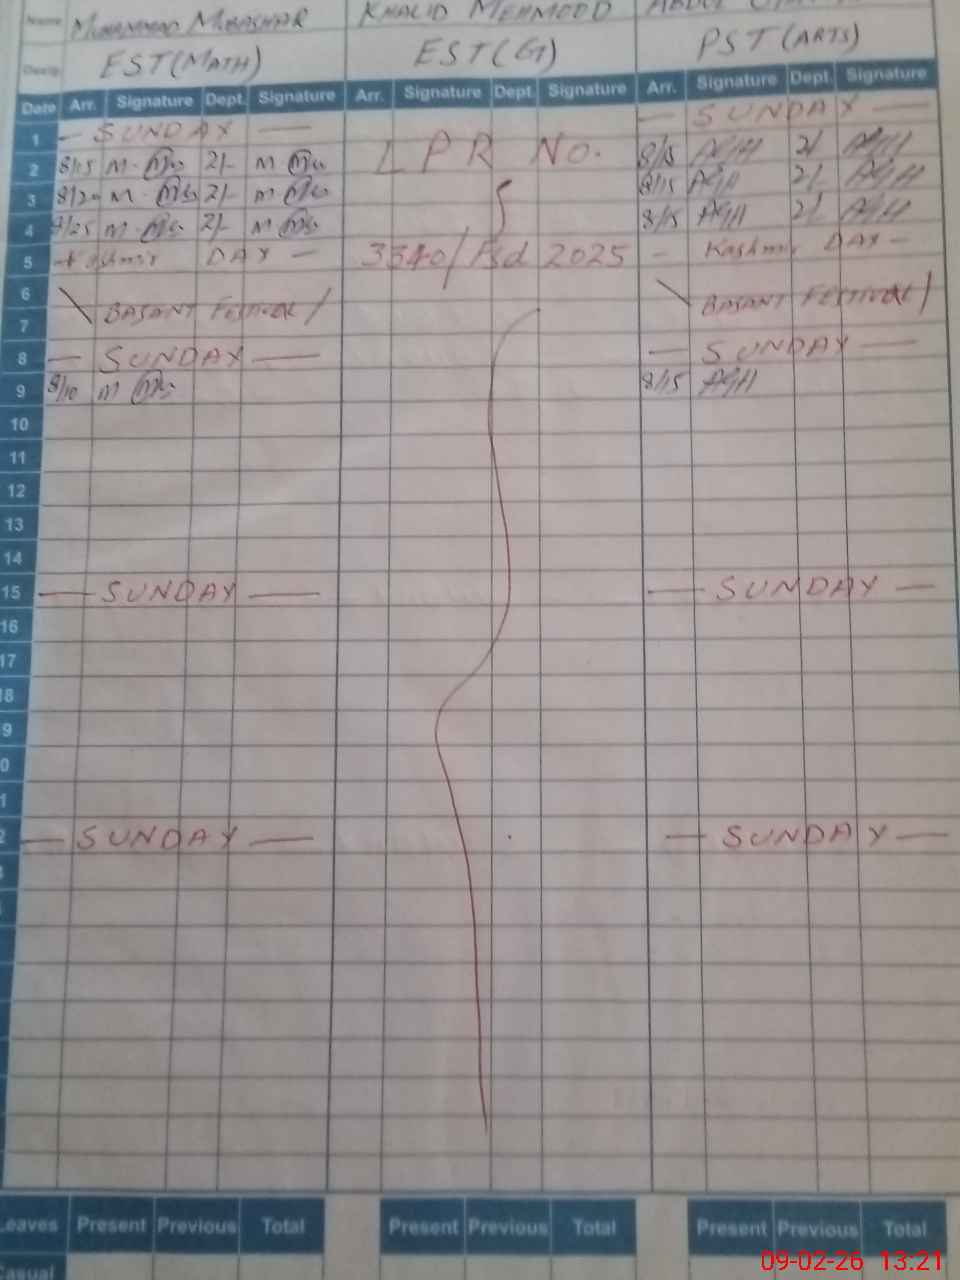 Name MUHAMMAD MUBASHAR KHALID MEHMOOD ABDUL
Desig. EST(MATH) EST(GT) PST(ARTS)
Date Arr. Signature Dept. Signature Arr. Signature Dept. Signature Arr. Signature Dept. Signature
1 — SUNDAY — — SUNDAY —
2 8/15 M. 2/- M LPR NO. 8/15 AGH 2/ AGH
3 8/20 M. 2/- M 8/15 AGH 2/ AGH
4 M. 2/- M 8/15 AGH 2/ AGH
5 Kashmir DAY — 3540/Fsd 2025 — Kashmir DAY —
6
7 \ BASANT FESTIVAL / \ BASANT FESTIVAL /
8 — SUNDAY — — SUNDAY —
9 8/10 M 8/15 AGH
10
11
12
13
14
15 — SUNDAY — — SUNDAY —
16
17
18
9
0
1
2 — SUNDAY — — SUNDAY —
Leaves Present Previous Total Present Previous Total Present Previous Total
Casual
09-02-26 13:21